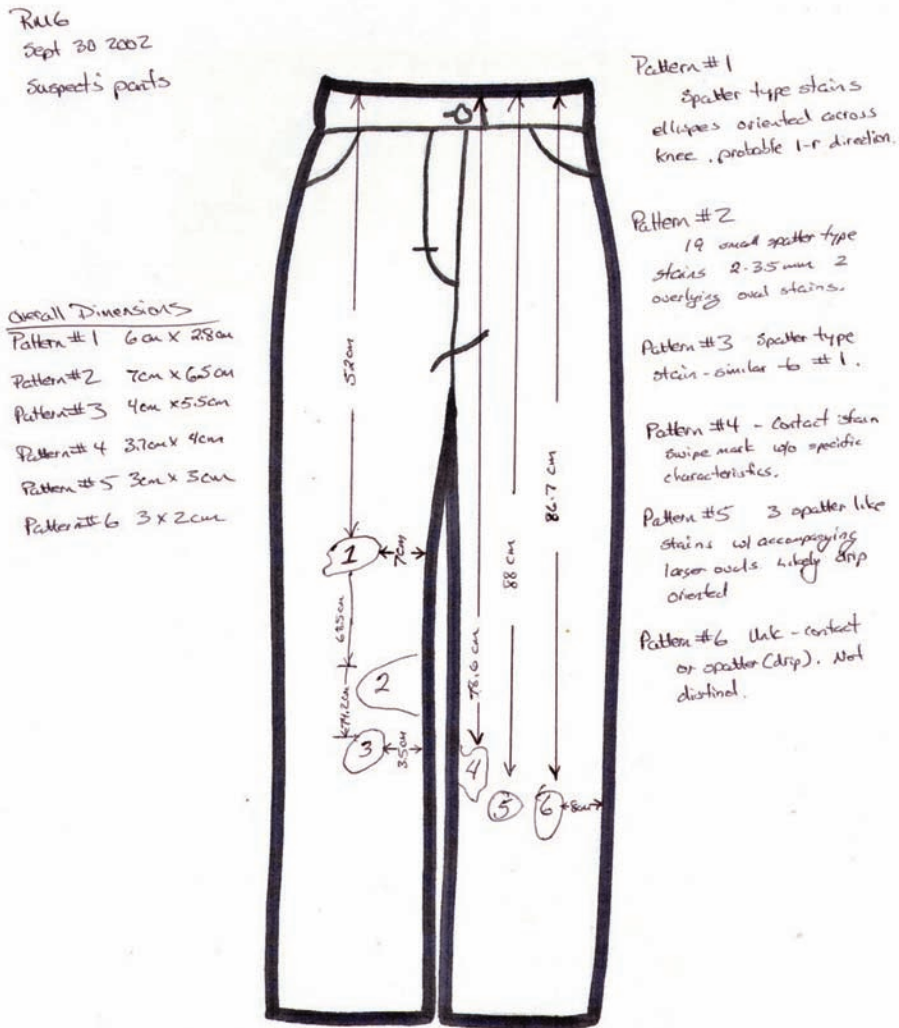 RMG
Sept 30 2002
Suspect's pants
Overall Dimensions
Pattern #1 6cm x 2.8cm
Pattern #2 7cm x 6.5cm
Pattern #3 4cm x 5.5cm
Pattern #4 3.7cm x 4cm
Pattern #5 3cm x 3cm
Pattern #6 3 x 2cm
52cm
7cm
1
2
74.2cm
3
3.5cm
78.6 cm
4
88 cm
5
86.7 cm
6
8cm
Pattern #1
Spatter type stains
ellipses oriented across
knee. probable l-r direction.
Pattern #2
19 small spatter type
stains 2-3.5mm 2
overlying oval stains.
Pattern #3 Spatter type
stain - similar to #1.
Pattern #4 - Contact stain
swipe mark w/o specific
characteristics.
Pattern #5 3 spatter like
stains w/ accompanying
larger ovals likely drip
oriented
Pattern #6 Unk - contact
or spatter (drip). Not
distinct.